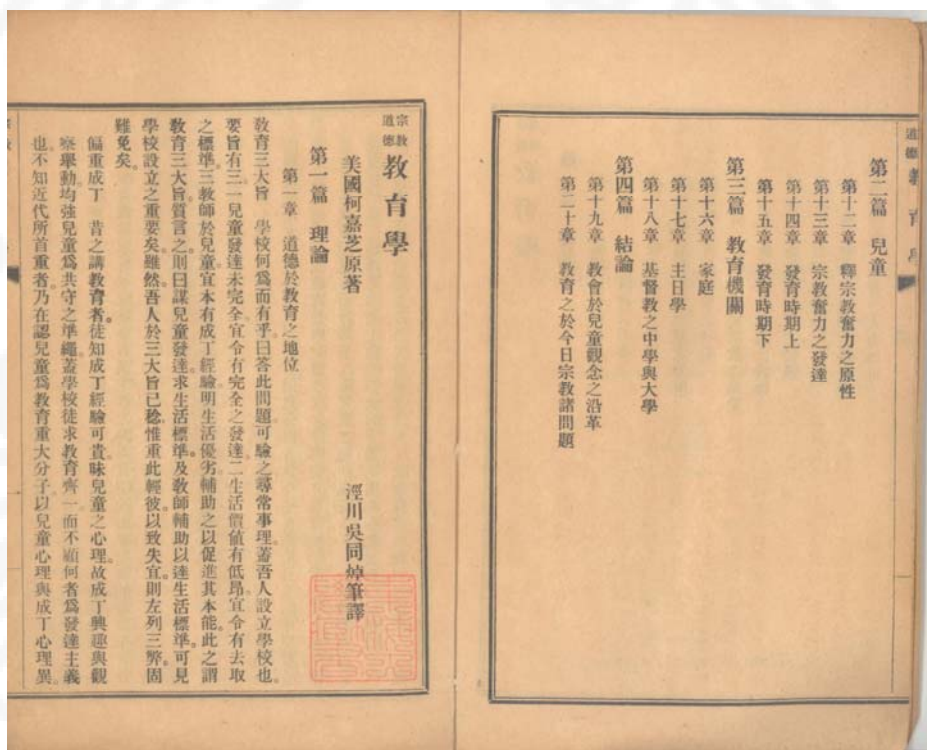 第二篇 兒童
第十二章 釋宗教奮力之原性
第十三章 宗教奮力之發達
第十四章 發育時期上
第十五章 發育時期下
第三篇 教育機關
第十六章 家庭
第十七章 主日學
第十八章 基督教之中學與大學
第四篇 結論
第十九章 教會於兒童觀念之沿革
第二十章 教育之於今日宗教諸問題
宗教道德教育學
美國柯嘉芝原著 涇川吳同焯筆譯
第一篇 理論
第一章 道德於教育之地位
教育三大旨 學校何爲而有乎曰答此問題可驗之尋常事理蓋吾人設立學校也。
要旨有三一兒童發達未完全宜令有完全之發達二生活價値有低昂宜令有去取
之標準。三教師於兒童宜本有成丁經驗明生活優劣輔助之以促進其本能此之謂
教育三大旨質言之。則曰謀兒童發達求生活標準及教師輔助以達生活標準。可見
學校設立之重要矣。雖然吾人於三大旨已稔。惟重此輕彼。以致失宜。則左列三弊固
難免矣。
偏重成丁 昔之講教育者。徒知成丁經驗可貴。昧兒童之心理。故成丁興趣與觀
察舉動。均強兒童爲共守之準繩。蓋學校徒求教育齊一。而不顧何者爲發達主義
也。不知近代所首重者。乃在認兒童爲教育重大分子。以兒童心理與成丁心理異。